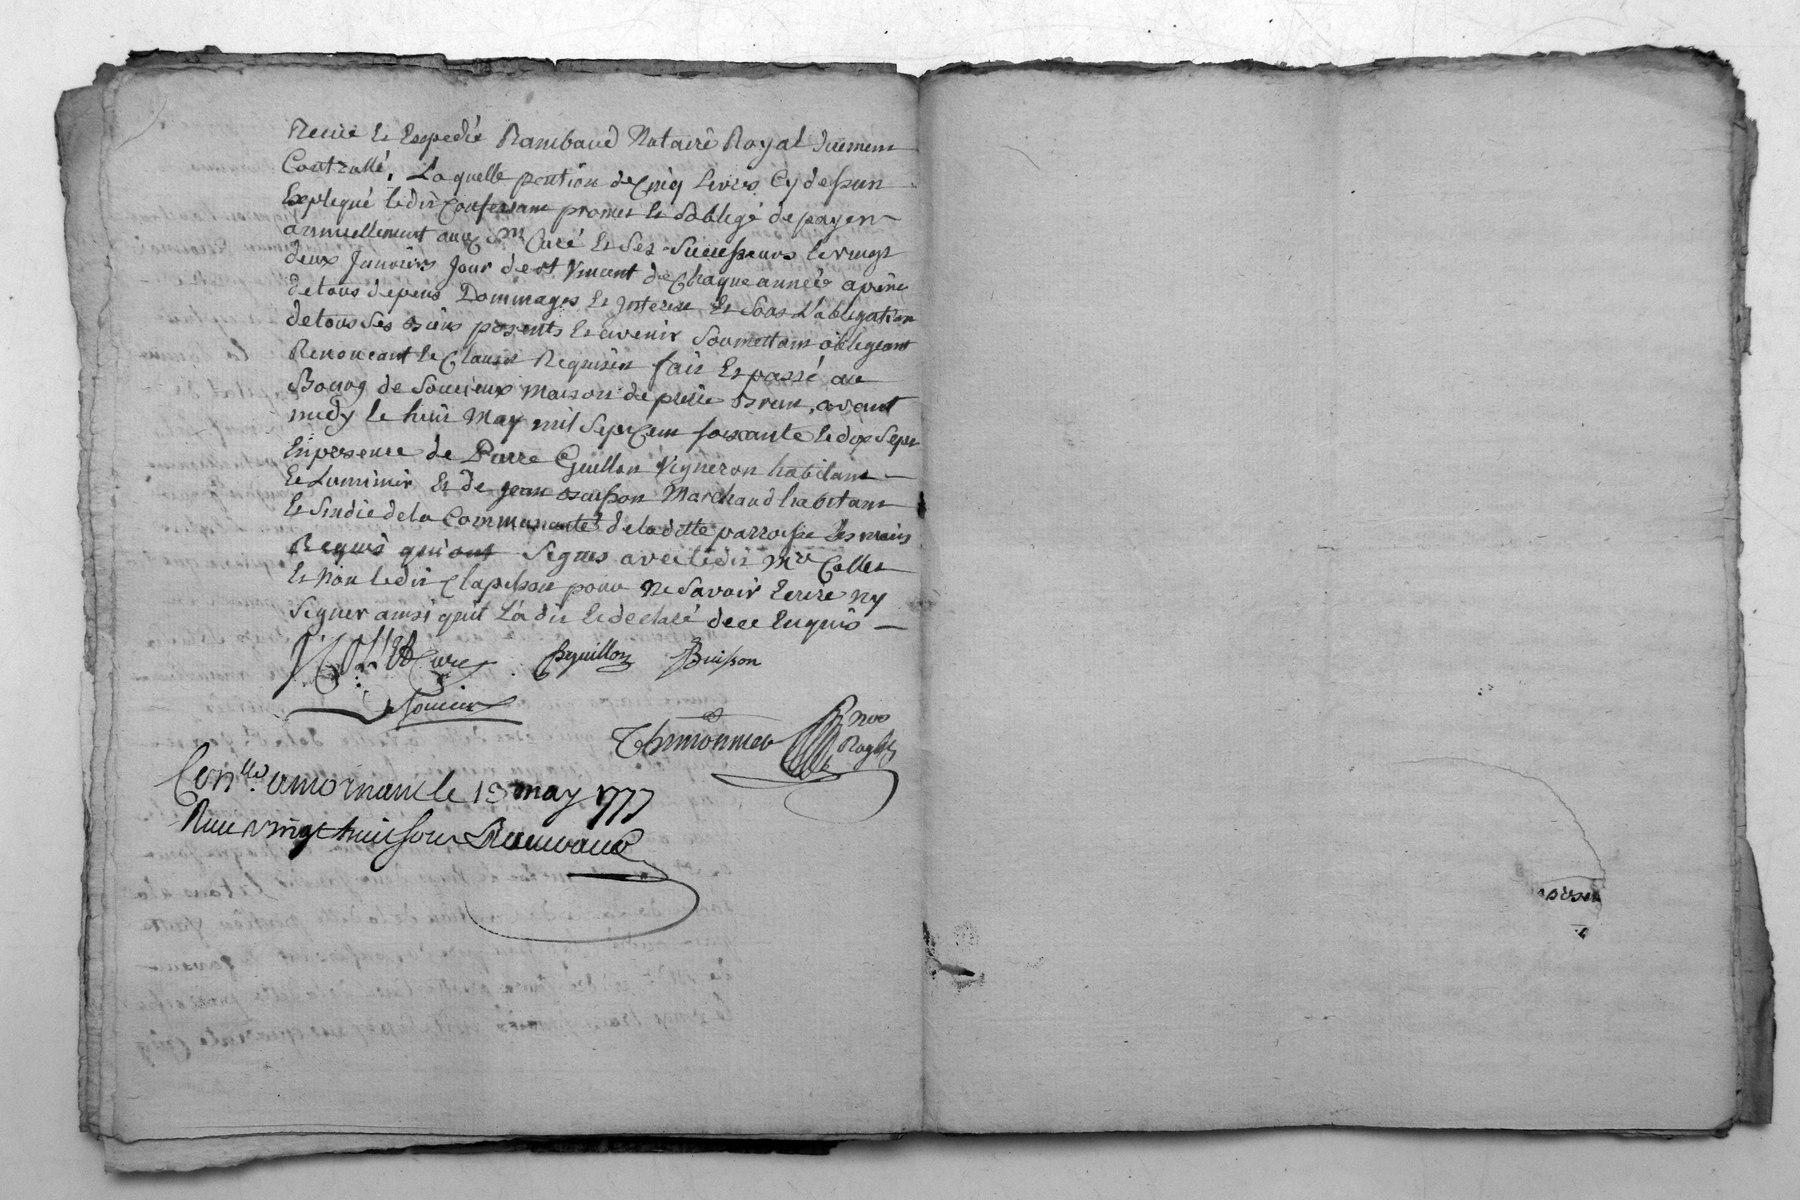 Recue et Expedié Rambaud Notaire Royal Duement
Controllé, Laquelle pention de Cinq Livres Cy dessus
Expliqué ledit Confessant promet et Soblige de payer
annuellement aux Sr Curé et Ses Successeurs le vingt
deux Janviers Jour de st Vincent de Chaque année apeine
de tous depens Dommages et Interest et Sous L'obligation
de tous Ses Biens presents et avenir Soumettant obligeant
Renonceant et Clauses Requises fait et passé au
Bourg de Soucieux maison de pierre Brun, avant
midy le huit May mil Sept Cent soixante et dix Sept
En presence de Pierre Guillon Vigneron habitant
et Luminier et de Jean Buisson Marchand habitant
et Sindic de la Communauté de la ditte parroisse temoins
Requis qui ont Signés avec ledit Mre Collet
et Non ledit Clapisson pour Ne Savoir Ecrire ny
Signer ainsi quil L'a dit et declaré de ce Enquis
Collet Curé Guillon JBuisson
de Soucieu
Thimonnier Nore
Royal
Conllé a mornant le 13 may 1777
Recu vingt huit sous Rambaud